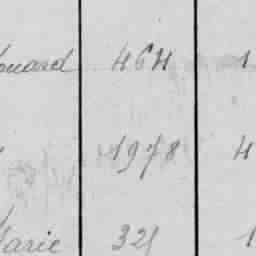 ouard 464 1
1978 4
Marie 321 1